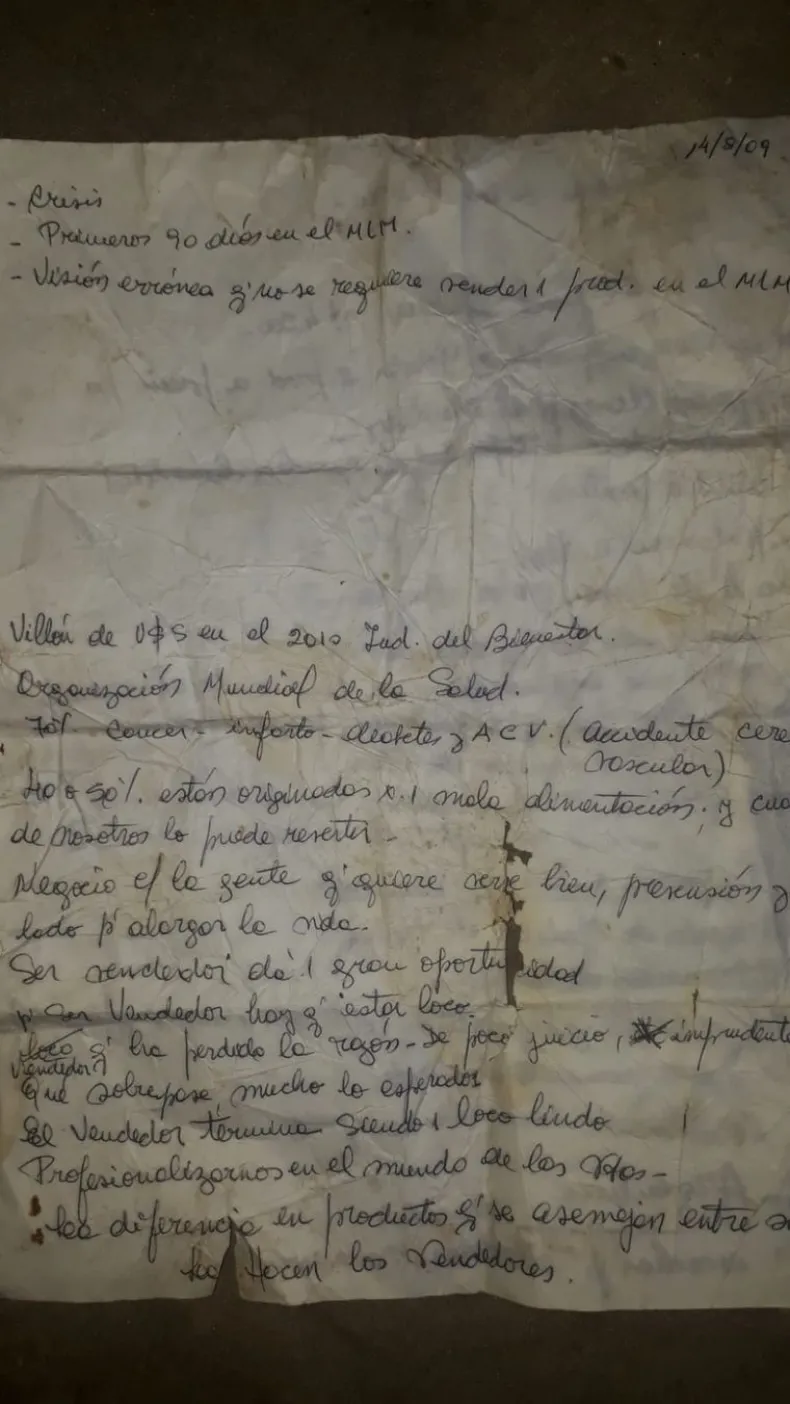 14/8/09
- Crisis
- Primeros 90 días en el MLM.
- Visión errónea q' no se requiere vender 1 prod. en el MLM
Villón de U$S en el 2010 Ind. del Bienestar.
Organización Mundial de la Salud.
70% Cancer - infarto - diabetes y ACV. (Accidente cere
vascular)
40 o 50%. están originados x. 1 mala alimentación. y cua
de nosotros lo puede revertir -
Negocio c/ la gente q' quiere verse bien, y
lado p' alargar la vida.
Ser vendedor dá 1 gran oportunidad
p' Ser Vendedor hay q' estar loco.
loco q' ha perdido la razón - De poco juicio, imprudente
Vendedor
Que sobrepasa mucho lo esperado
El Vendedor termina siendo 1 loco lindo
Profesionalizarnos en el mundo de las Vtas -
La diferencia en productos q' se asemejan entre s
la Hacen los Vendedores.